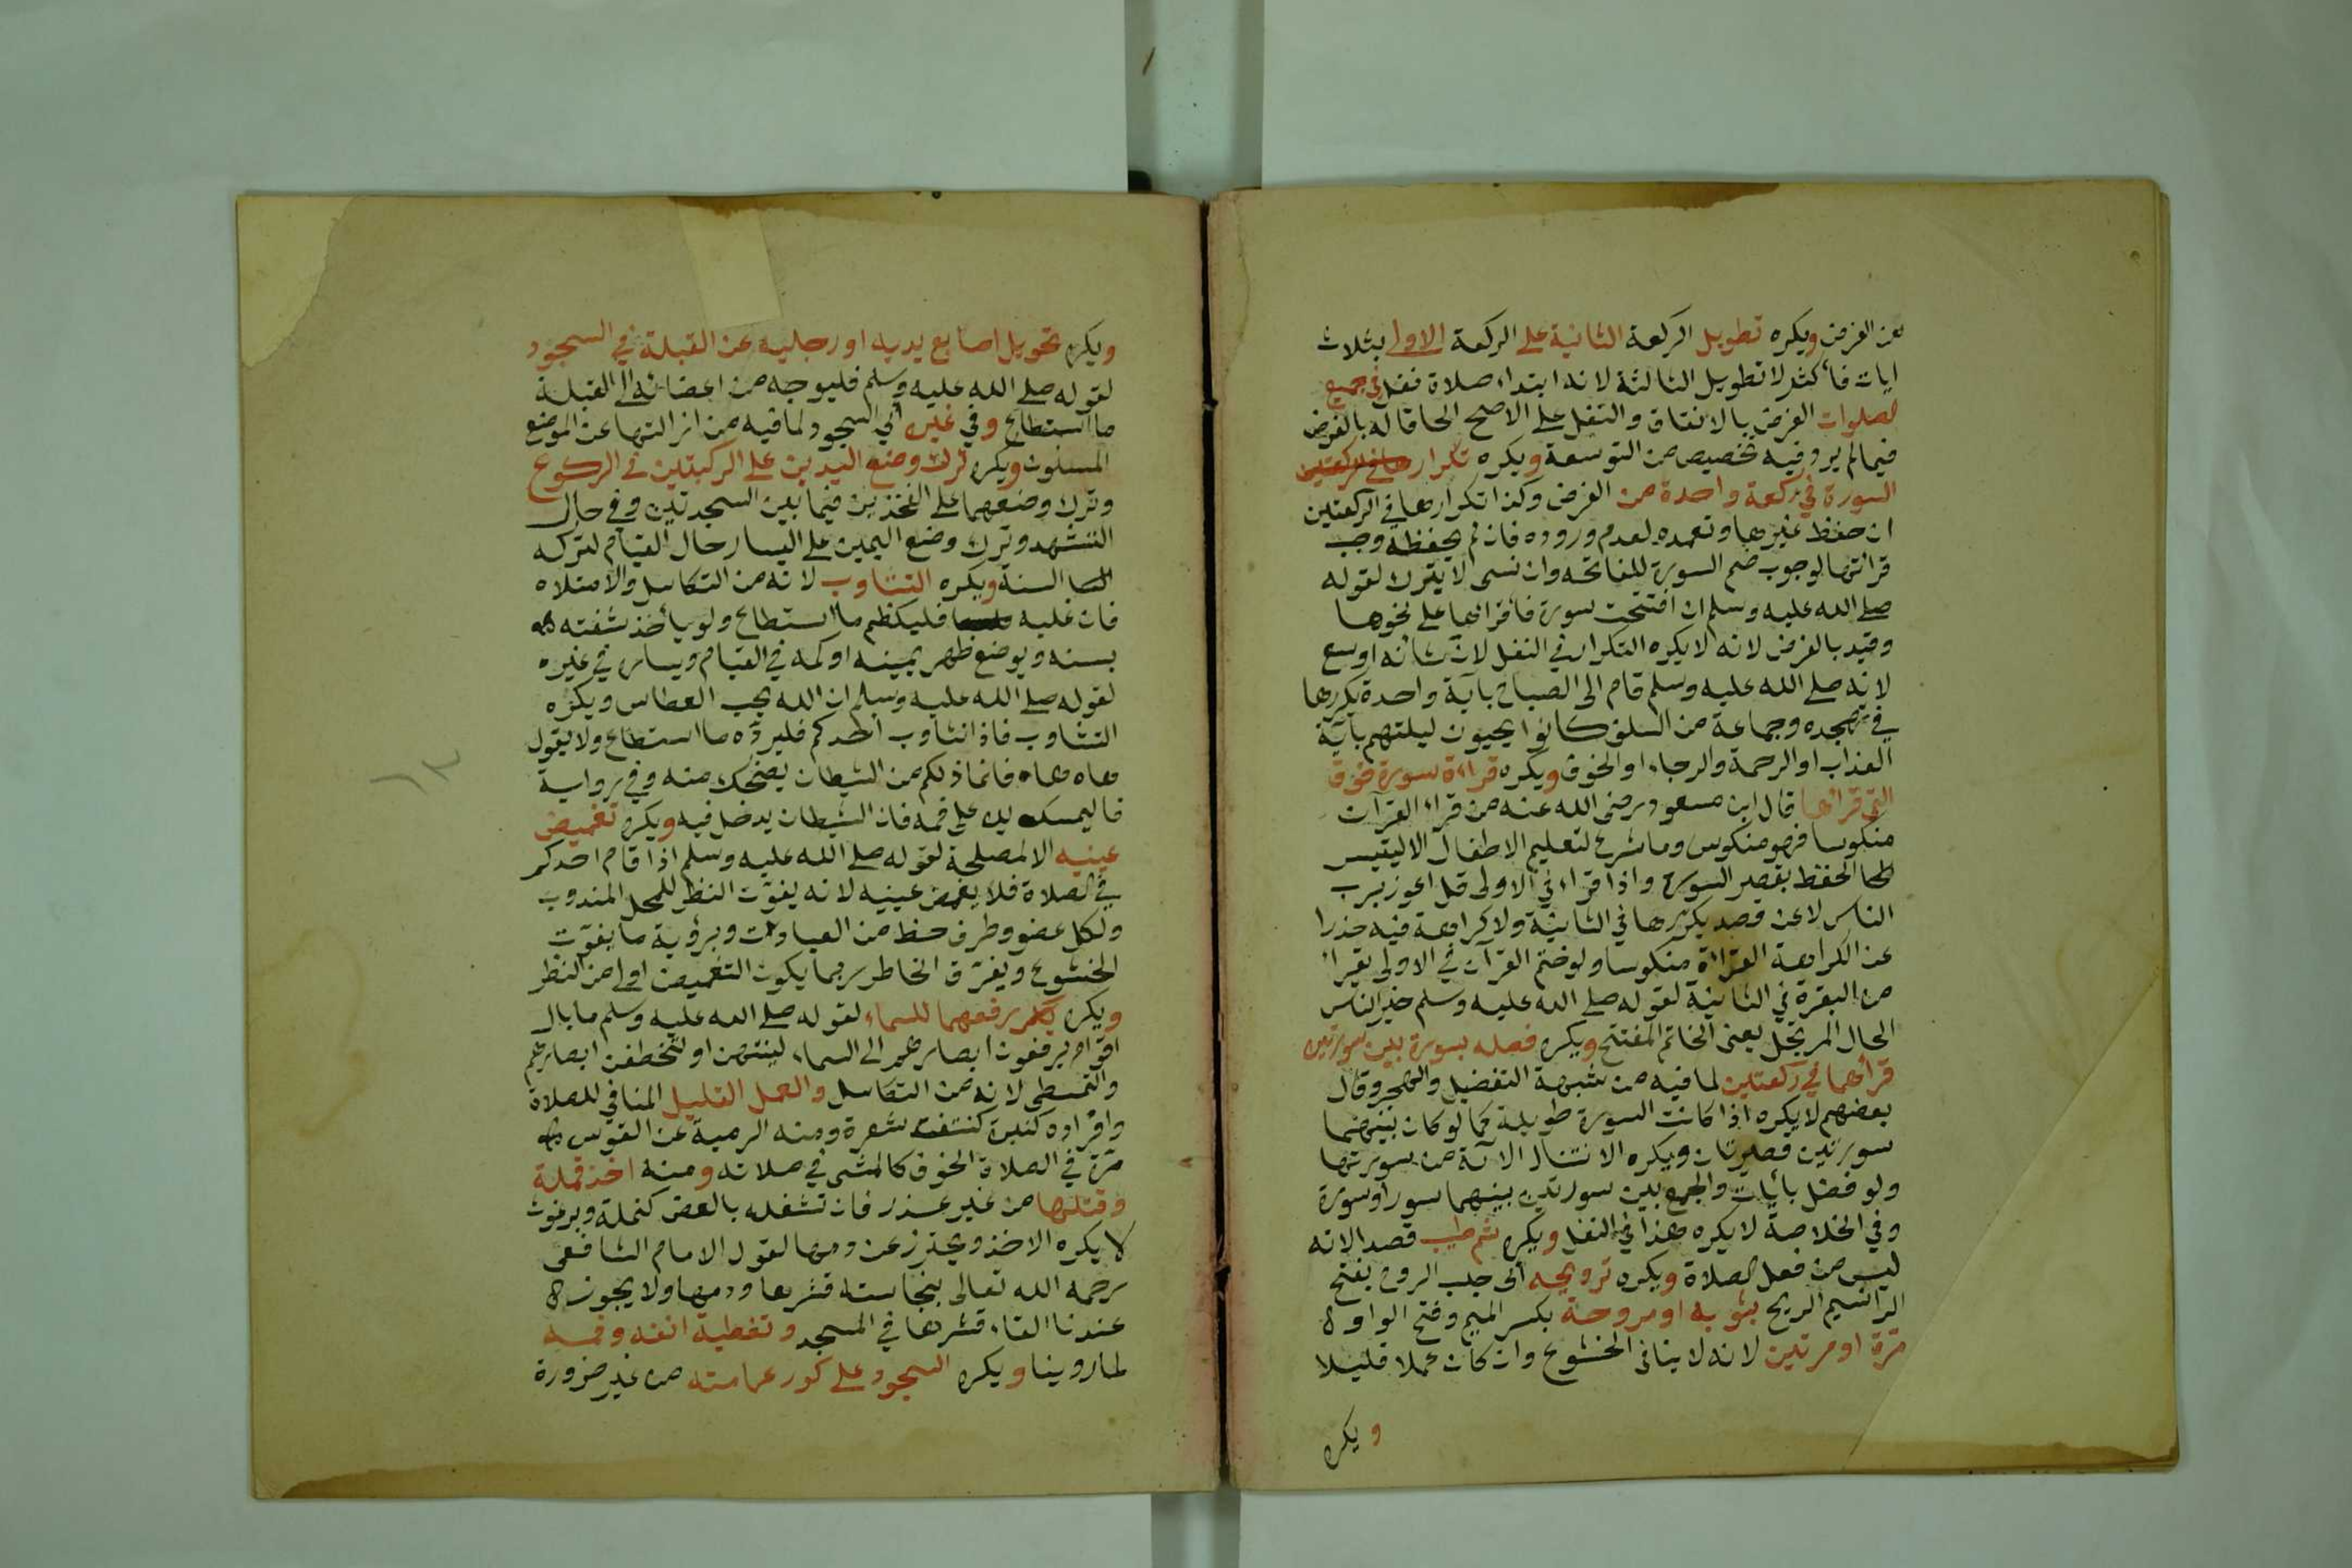 عن الفرض ويكره تطويل الركعة الثانية على الركعة الاولى بثلاث
ايات فأكثر لا تطويل الثالثة لانه ابتداء صلاة نفل في جميع
لصلوات الفرض بالاتفاق والنفل على الاصح الحاقا له بالفرض
فيما لم يرد فيه تخصيص من التوسعة ويكره تكرار
السورة في ركعة واحدة من الفرض وكذا تكرارها في الركعتين
ان حفظ غيرها وتعمده لعدم وروده فان لم يحفظه وجب
قرائتها لوجوب ضم السورة للفاتحه وان نسى لا يترك لقوله
صلى الله عليه وسلم ان افتتحت سورة فأقرائها على نحوها
وقيد بالفرض لانه لا يكره التكرار في النفل لان شأنه اوسع
لانه صلى الله عليه وسلم قام الى الصباح بآية واحدة يكررها
في تهجده وجماعة من السلف كانوا يحيون ليلتهم بآية
العذاب او الرحمة والرجاء او الخوف ويكره قراءة سورة فوق
التي قرائها قال ابن مسعود رضى الله عنه من قراء القرآن
منكوسا فهو منكوس وما شرع لتعليم الاطفال الا ليتيسر
الحفظ بقصر السورة واذا قراء في الاولى قل اعوذ برب
الناس لا عن قصد يكررها في الثانية ولا كراهة فيه حذرا
عن الكراهة القراءة منكوسا ولو ختم القرآن في الاولى يقراء
من البقرة في الثانية لقوله صلى الله عليه وسلم خير الناس
الحال المرتحل يعنى الخاتم المفتتح ويكره فصله بسورة بين سورتين
قرأهما في ركعتين لما فيه من شبهة التفضيل والهجر وقال
بعضهم لا يكره اذا كانت السورة طويلة كما لو كان بينهما
سورتين قصيرتان ويكره الانتقال الآية من سورتها
ولو فصل بأيات والجمع بين سورتين بينهما سور او سورة
وفي الخلاصة لا يكره هذا في النفل ويكره شم طيب قصد الانه
ليس من فعل الصلاة ويكره ترويحه أى جلب الروح بفتح
الرا نسيم الريح بثوبه او مروحة بكسر الميم وفتح الواو
مرة او مرتين لانه لا ينافى الخشوع وان كان عملا قليلا
ويكره
ويكره تحويل اصابع يديه او رجليه عن القبلة في السجود
لقوله صلى الله عليه وسلم فليوجه من اعضائه الى القبلة
ما استطاع وفي غيره أي السجود لما فيه من ازالتها عن الموضع
المسنون ويكره ترك وضع اليدين على الركبتين في الركوع
وترك وضعهما على الفخذين فيما بين السجدتين وفي حال
التشهد وترك وضع اليمين على اليسار حال القيام لتركه
السنة ويكره التثاوب لانه من التكاسل والامتلاه
فان غلبه فليكظم ما استطاع ولو يأخذ شفته
بسنه وبوضع ظهر يمينه او كمه في القيام ويساره في غيره
لقوله صلى الله عليه وسلم ان الله يحب العطاس ويكره
التثاوب فاذا تثاوب أحدكم فليرده ما استطاع ولا يقول
هاه هاه فانما ذلكم من الشيطان يضحك منه وفي رواية
فاليمسك يده على فمه فان الشيطان يدخل فيه ويكره تغميض
عينيه الا لمصلحة لقوله صلى الله عليه وسلم اذا قام احدكم
في الصلاة فلا يغمض عينيه لانه يفوّت النظر للمحل المندوب
ولكل عضو وطرف حظ من العبادات وبرؤية ما يفوّت
الخشوع ويفرّق الخاطر ربما يكون التغميض اولى من النظر
ويكره رفعهما للسماء لقوله صلى الله عليه وسلم ما بال
اقوام يرفعون ابصارهم الى السماء لينتهن او لتخطفن ابصارهم
والتمطى لانه من التكاسل والعمل القليل المنافي للصلاة
وافراده كثيرة كنتف شعرة ومنه الرمية عن القوس
مرة في الصلاة الخوف كالمشى في صلاته ومنه اخذ قملة
وقتلها من غير عذر فان تشغله بالعض كنملة وبرغوث
لا يكره الاخذ ويحترز عن دمها لقول الامام الشافعى
رحمه الله تعالى بنجاسته قشرها ودمها ولا يجوز
عندنا القاء قشرها في المسجد وتغطية انفه وفمه
لما روينا ويكره السجود على كور عمامته من غير ضرورة
١٣